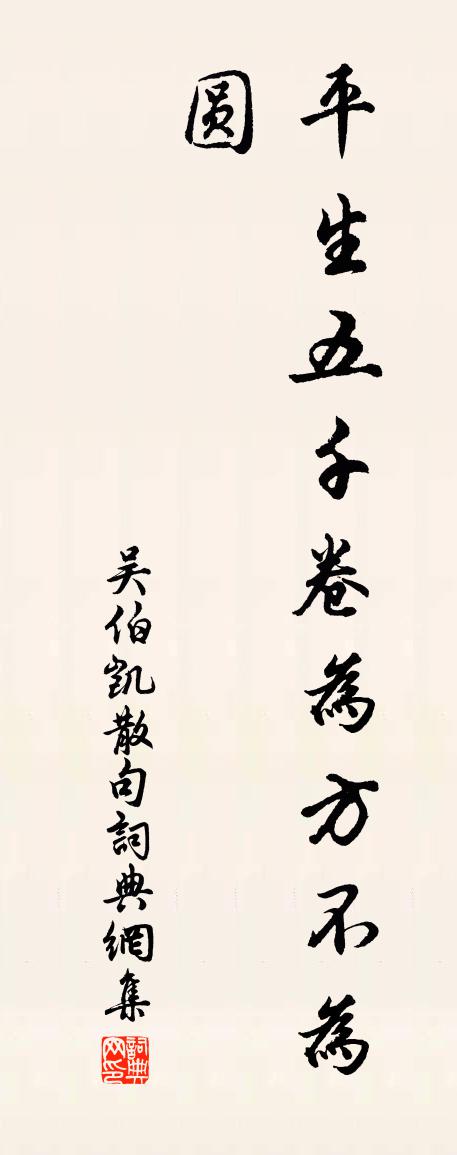 平生五千卷為方不為
圆
吴伯凯散句詞典網集
詞典网印